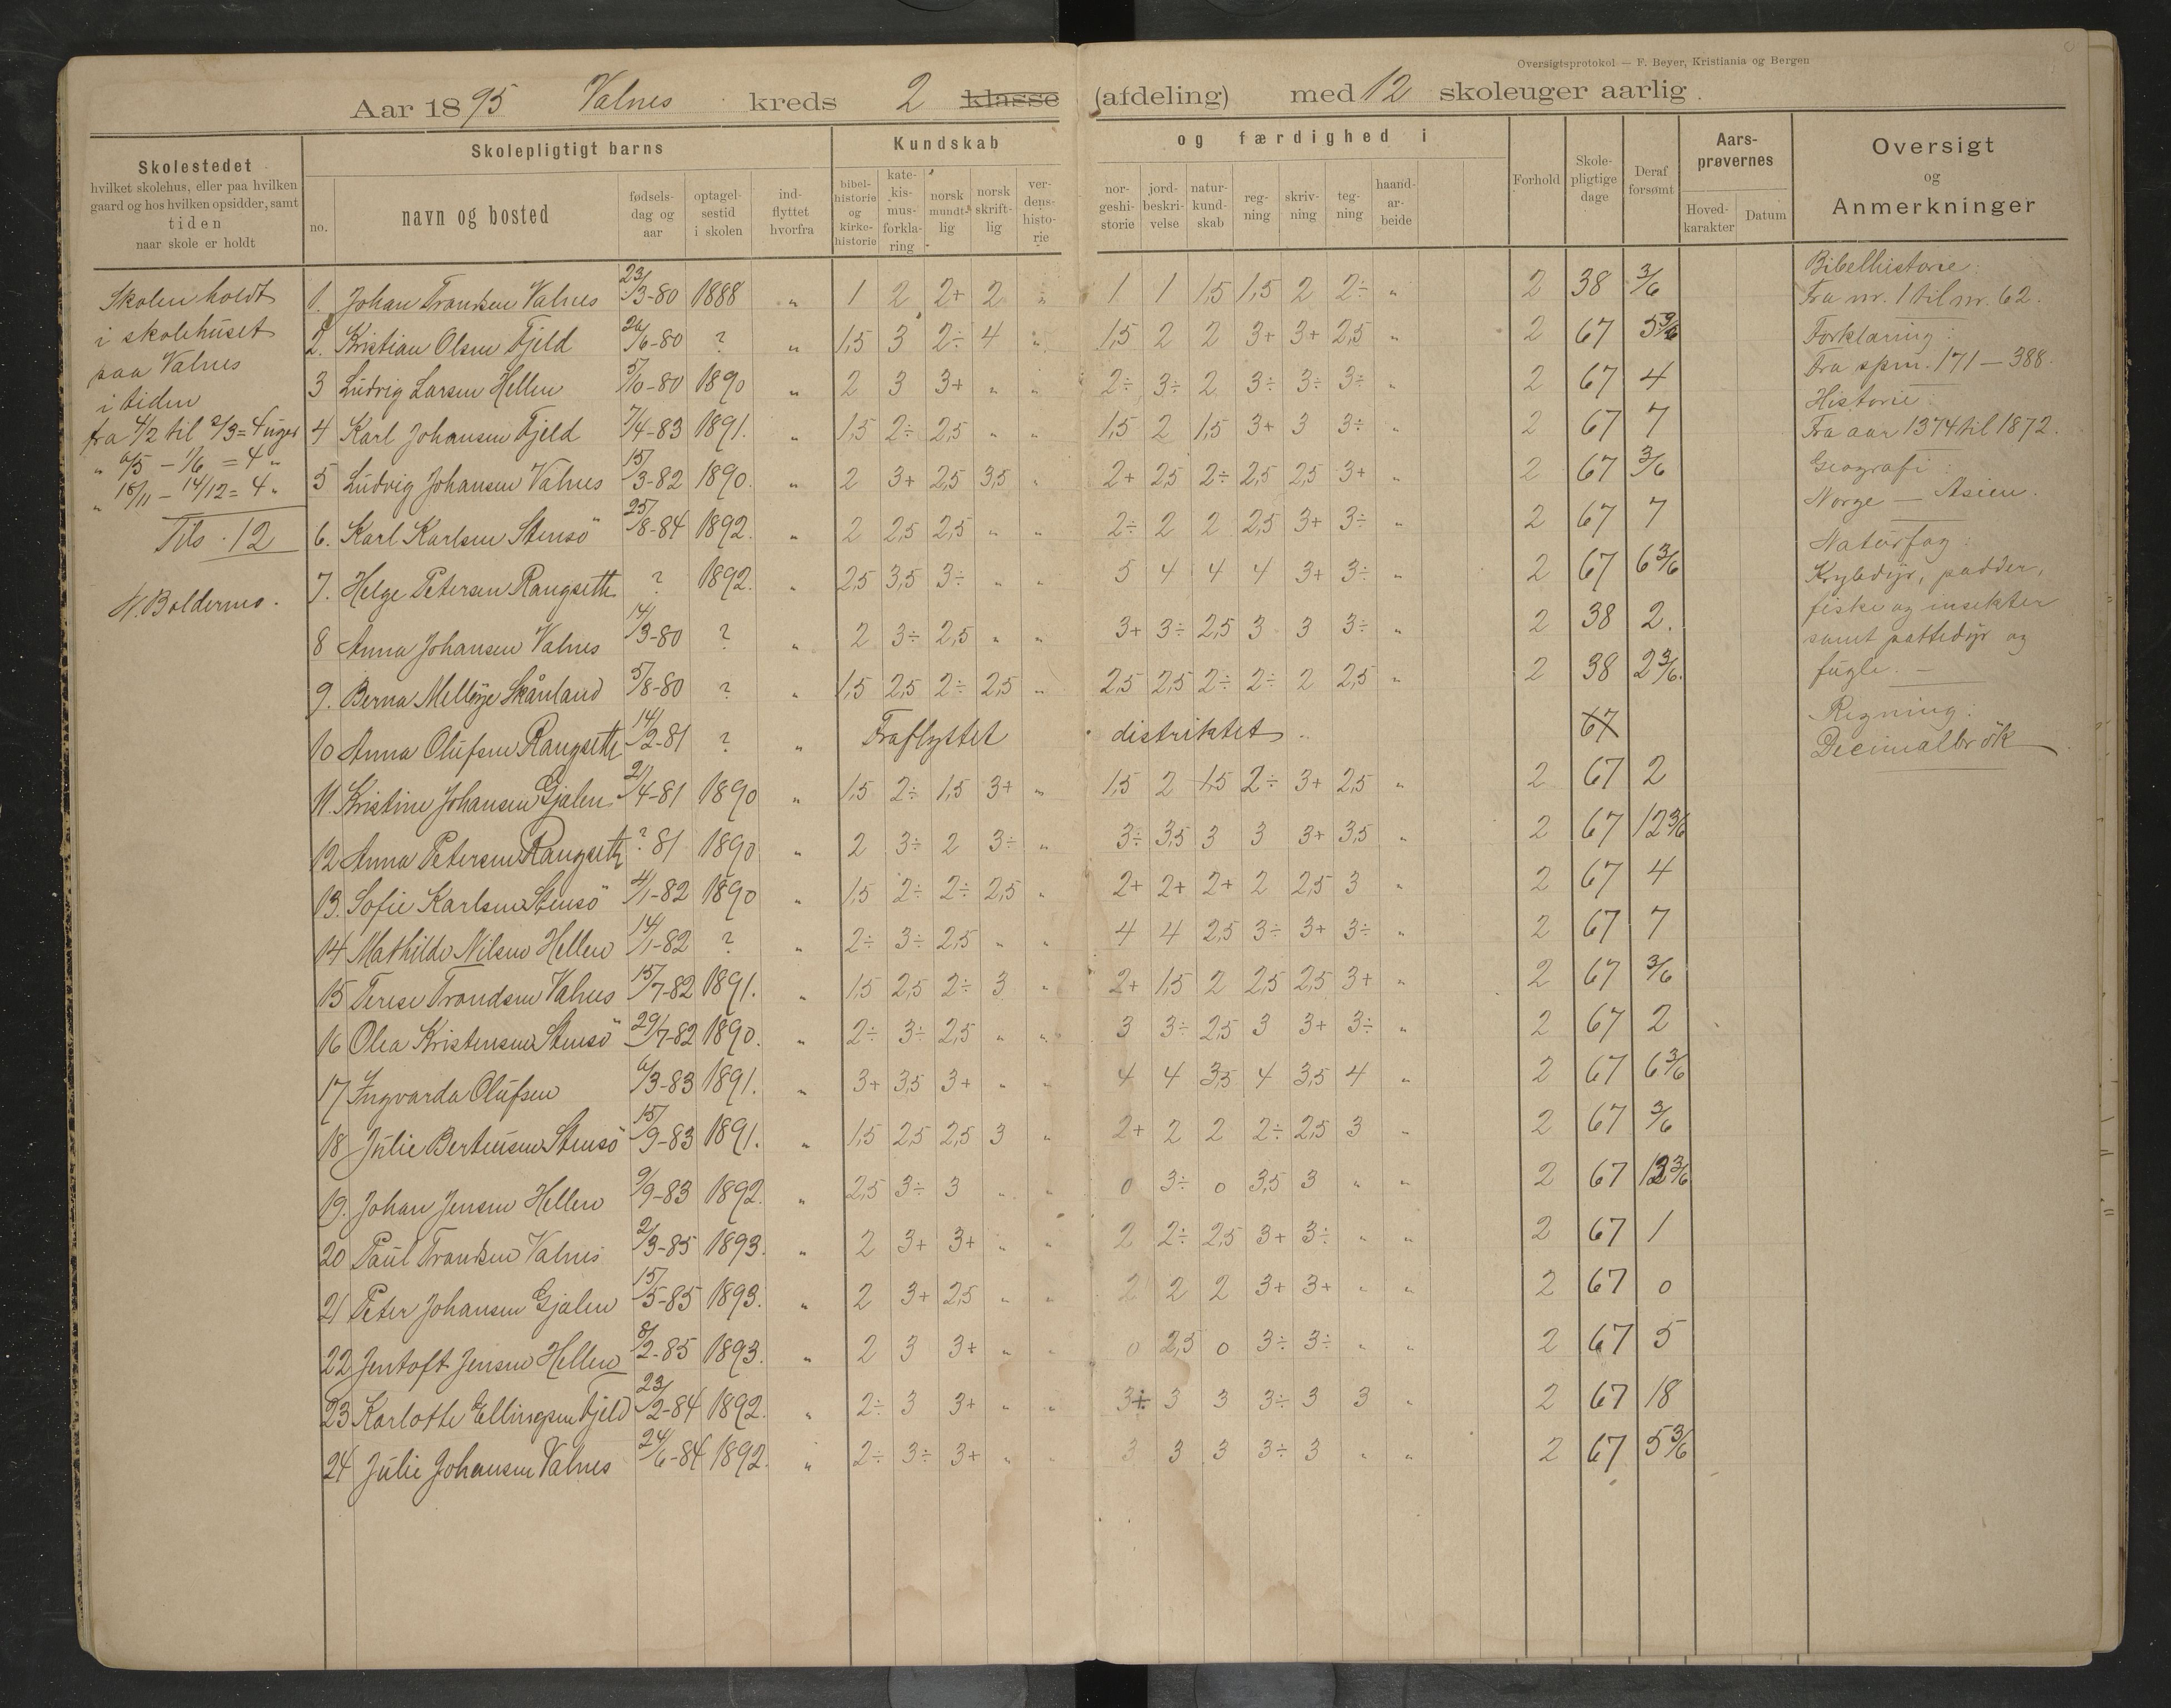 Oversigtsprotokol — F. Beyer, Kristiania og Bergen
Aar 1895 Valnes kreds 2 klasse (afdeling) med 12 skoleuger aarlig.
Skolestedet
hvilket skolehus, eller paa hvilken
gaard og hos hvilken opsidder, samt
tiden
naar skole er holdt
Skolepligtigt barns
no.
navn og bosted
fødsels-
dag og
aar
optagel-
sestid
i skolen
ind-
flyttet
hvorfra
Kundskab og færdighed i
bibel-
historie
og
kirke-
historie
kate-
kis-
mus-
forkla-
ring
norsk
mundt-
lig
norsk
skrift-
lig
ver-
dens-
histo-
rie
nor-
geshi-
storie
jord-
beskri-
velse
natur-
kund-
skab
reg-
ning
skriv-
ning
teg-
ning
haand-
ar-
beide
Forhold
Skole-
pligtige
dage
Deraf
forsømt
Aars-
prøvernes
Hoved-
karakter
Datum
Oversigt
og
Anmerkninger
Skolen holdt
i skolehuset
paa Valnes
i tiden
fra 4/2 til 2/3 = 4 uger
" 6/5 – 1/6 = 4 "
" 18/11 – 14/12 = 4 "
Tils. 12
N. Boldermo.
1. Johan Trondsen Valnes 23/3-80 1888 " 1 2 2+ 2 " 1 1 1,5 1,5 2 2÷ " 2 38 3/6
2. Kristian Olsen Fjeld 26/6-80 ? " 1,5 3 2÷ 4 " 1,5 2 2 3+ 3+ 2,5 " 2 67 5 3/6
3 Ludvig Larsen Hellen 5/10-80 1890 " 2 3 3+ " " 2÷ 3÷ 2 3÷ 3÷ 3÷ " 2 67 4
4 Karl Johansen Fjeld 7/4-83 1891. " 1,5 2÷ 2,5 " " 1,5 2 1,5 3+ 3 3÷ " 2 67 7
5 Ludvig Johansen Valnes 15/3-82 1890. " 2 3+ 2,5 3,5 " 2+ 2,5 2÷ 2,5 2,5 3+ " 2 67 3/6
6. Karl Karlsen Stensö 25/8-84 1892. " 2 2,5 2,5 " " 2÷ 2 2 2,5 3+ 3÷ " 2 67 7
7. Helge Petersen Rangseth ? 1892. " 2,5 3,5 3÷ " " 5 4 4 4 3+ 3÷ " 2 67 6 3/6
8 Anna Johansen Valnes 14/3-80 ? " 2 3÷ 2,5 " " 3+ 3÷ 2,5 3 3 3÷ " 2 38 2.
9. Berna Skånland 5/8-80 ? " 1,5 2,5 2÷ 2,5 " 2,5 2,5 2÷ 2÷ 2 2,5 " 2 38 2 3/6.
10 Anna Olufsen Rangseth 14/2-81 ? " Fraflyttet distriktet " 67
11. Kristine Johansen Gjalen 21/4-81 1890 " 1,5 2÷ 1,5 3+ " 1,5 2 1,5 2÷ 3+ 2,5 " 2 67 2
12 Anna Petersen Rangseth ? 81 1890 " 2 3÷ 2 3÷ " 3÷ 3,5 3 3 3+ 3,5 " 2 67 12 3/6
13. Sofie Karlsen Stensö 4/1-82 1890 " 1,5 2÷ 2÷ 2,5 " 2+ 2+ 2+ 2 2,5 3 " 2 67 4
14 Mathilde Nilsen Hellen 14/1-82 ? " 2÷ 3÷ 2,5 " " 4 4 2,5 3÷ 3+ 3÷ " 2 67 7
15 Terese Trondsen Valnes 15/7-82 1891. " 1,5 2,5 2÷ 3 " 2+ 1,5 2 2,5 2,5 3+ " 2 67 3/6
16 Olea Kristensen Stensö 29/7-82 1890. " 2÷ 3÷ 2,5 " " 3 3÷ 2,5 3 3+ 3÷ " 2 67 2
17 Ingvarda Olufsen 6/3-83 1891. " 3+ 3,5 3+ " " 4 4 3,5 4 3,5 4 " 2 67 6 3/6
18 Julie Berteusen Stensö 15/9-83 1891. " 1,5 2,5 2,5 3 " 2+ 2 2 2÷ 2,5 3 " 2 67 3/6
19. Johan Jensen Hellen 9/9-83 1892. " 2,5 3÷ 3 " " 0 3÷ 0 3,5 3 " " 2 67 13 3/6
20 Paul Trondsen Valnes 2/3-85 1893. " 2 3+ 3+ " " 2 2÷ 2,5 3+ 3÷ " " 2 67 1
21 Peter Johansen Gjalen 15/5-85 1893. " 2 3+ 2,5 " " 2 2 2 3+ 3+ " " 2 67 0
22 Jentoft Jensen Hellen 8/2-85 1893. " 2 3 3+ " " 0 2,5 0 3÷ 3÷ " " 2 67 5
23 Karlotte Ellingsen Fjeld 23/2-84 1892. " 2÷ 3 3+ " " 3÷ 3 3 3÷ 3 3 " 2 67 18
24 Julie Johansen Valnes 24/6-84 1892. " 2÷ 3÷ 3+ " " 3 3 3 3÷ 3 " " 2 67 5 3/6
Bibelhistorie:
Fra nr. 1 til nr. 62.
Forklaring:
Fra spm. 171 – 388.
Historie:
Fra aar 1374 til 1872.
Geografi:
Norge – Asien.
Naturfag:
Krybdyr, padder,
fiske og insekter
samt pattedyr og
fugle. –
Regning:
Decimalbrök